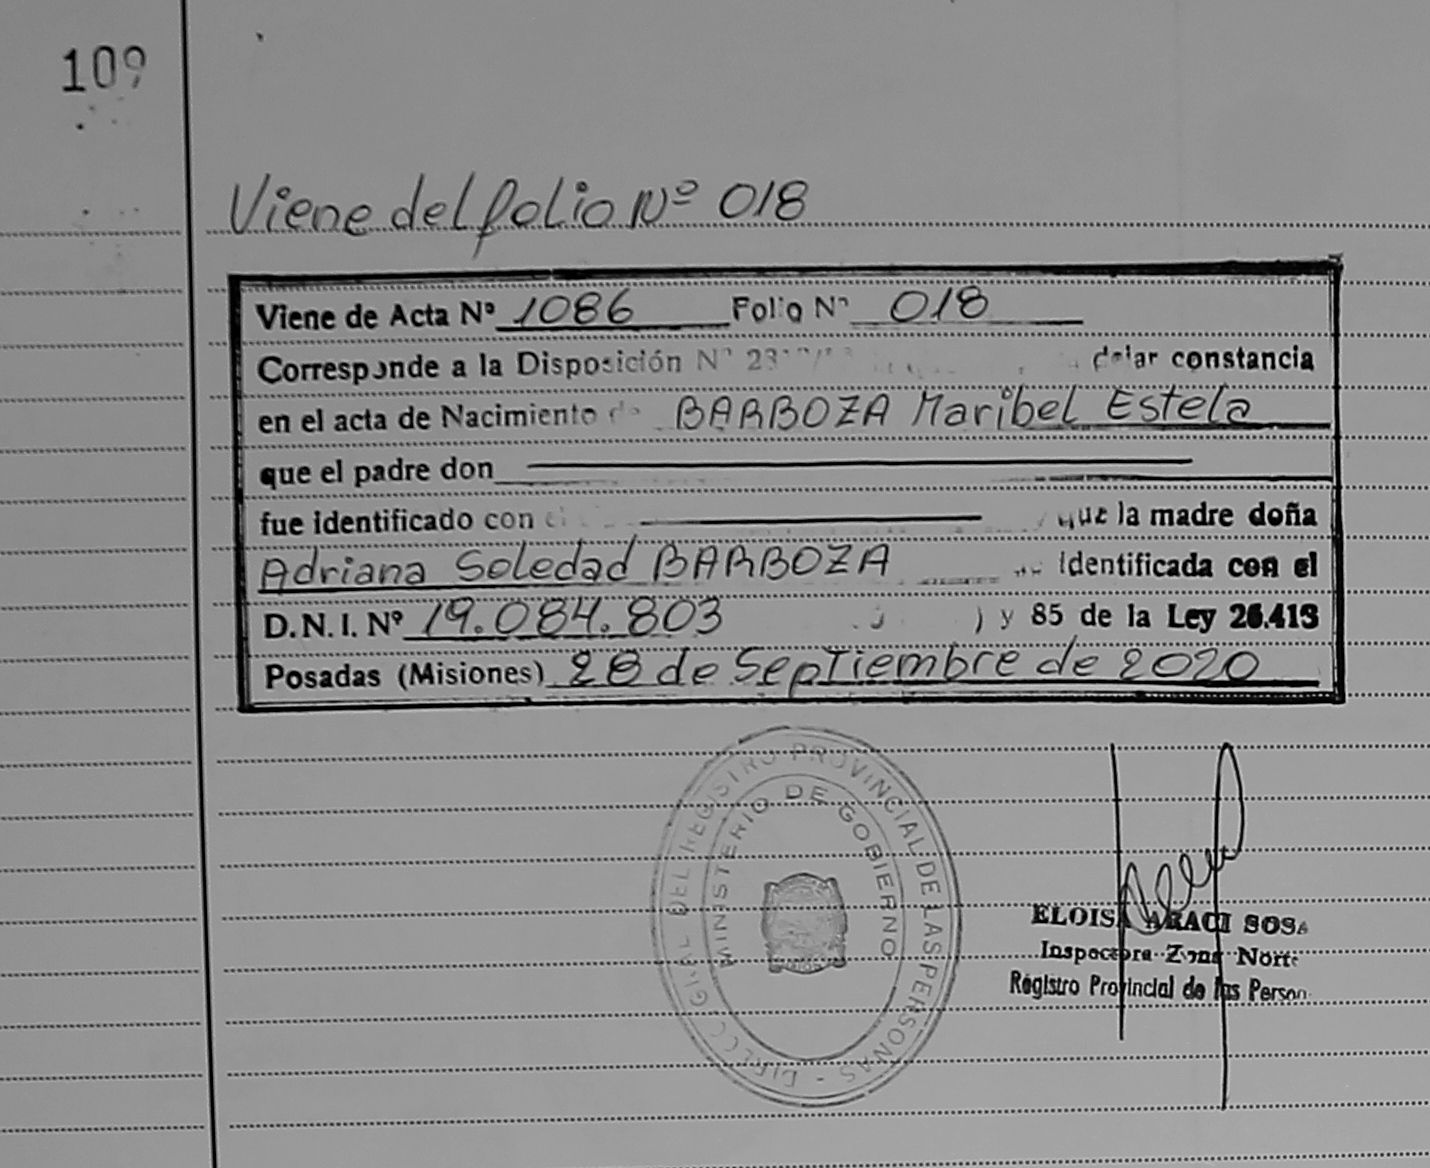 109
Viene del folio Nº 018
Viene de Acta Nº 1086 Folio Nº 018
Corresponde a la Disposición Nº dejar constancia
en el acta de Nacimiento de BARBOZA Maribel Estela
que el padre don
fue identificado con el que la madre doña
Adriana Soledad BARBOZA identificada con el
D.N.I. Nº 19.084.803 y 85 de la Ley 26.413
Posadas (Misiones) 28 de Septiembre de 2020
REGISTRO PROVINCIAL DE LAS PERSONAS
MINISTERIO DE GOBIERNO
ELOISA ARACI SOSA
Inspectora Zona Norte
Registro Provincial de las Person